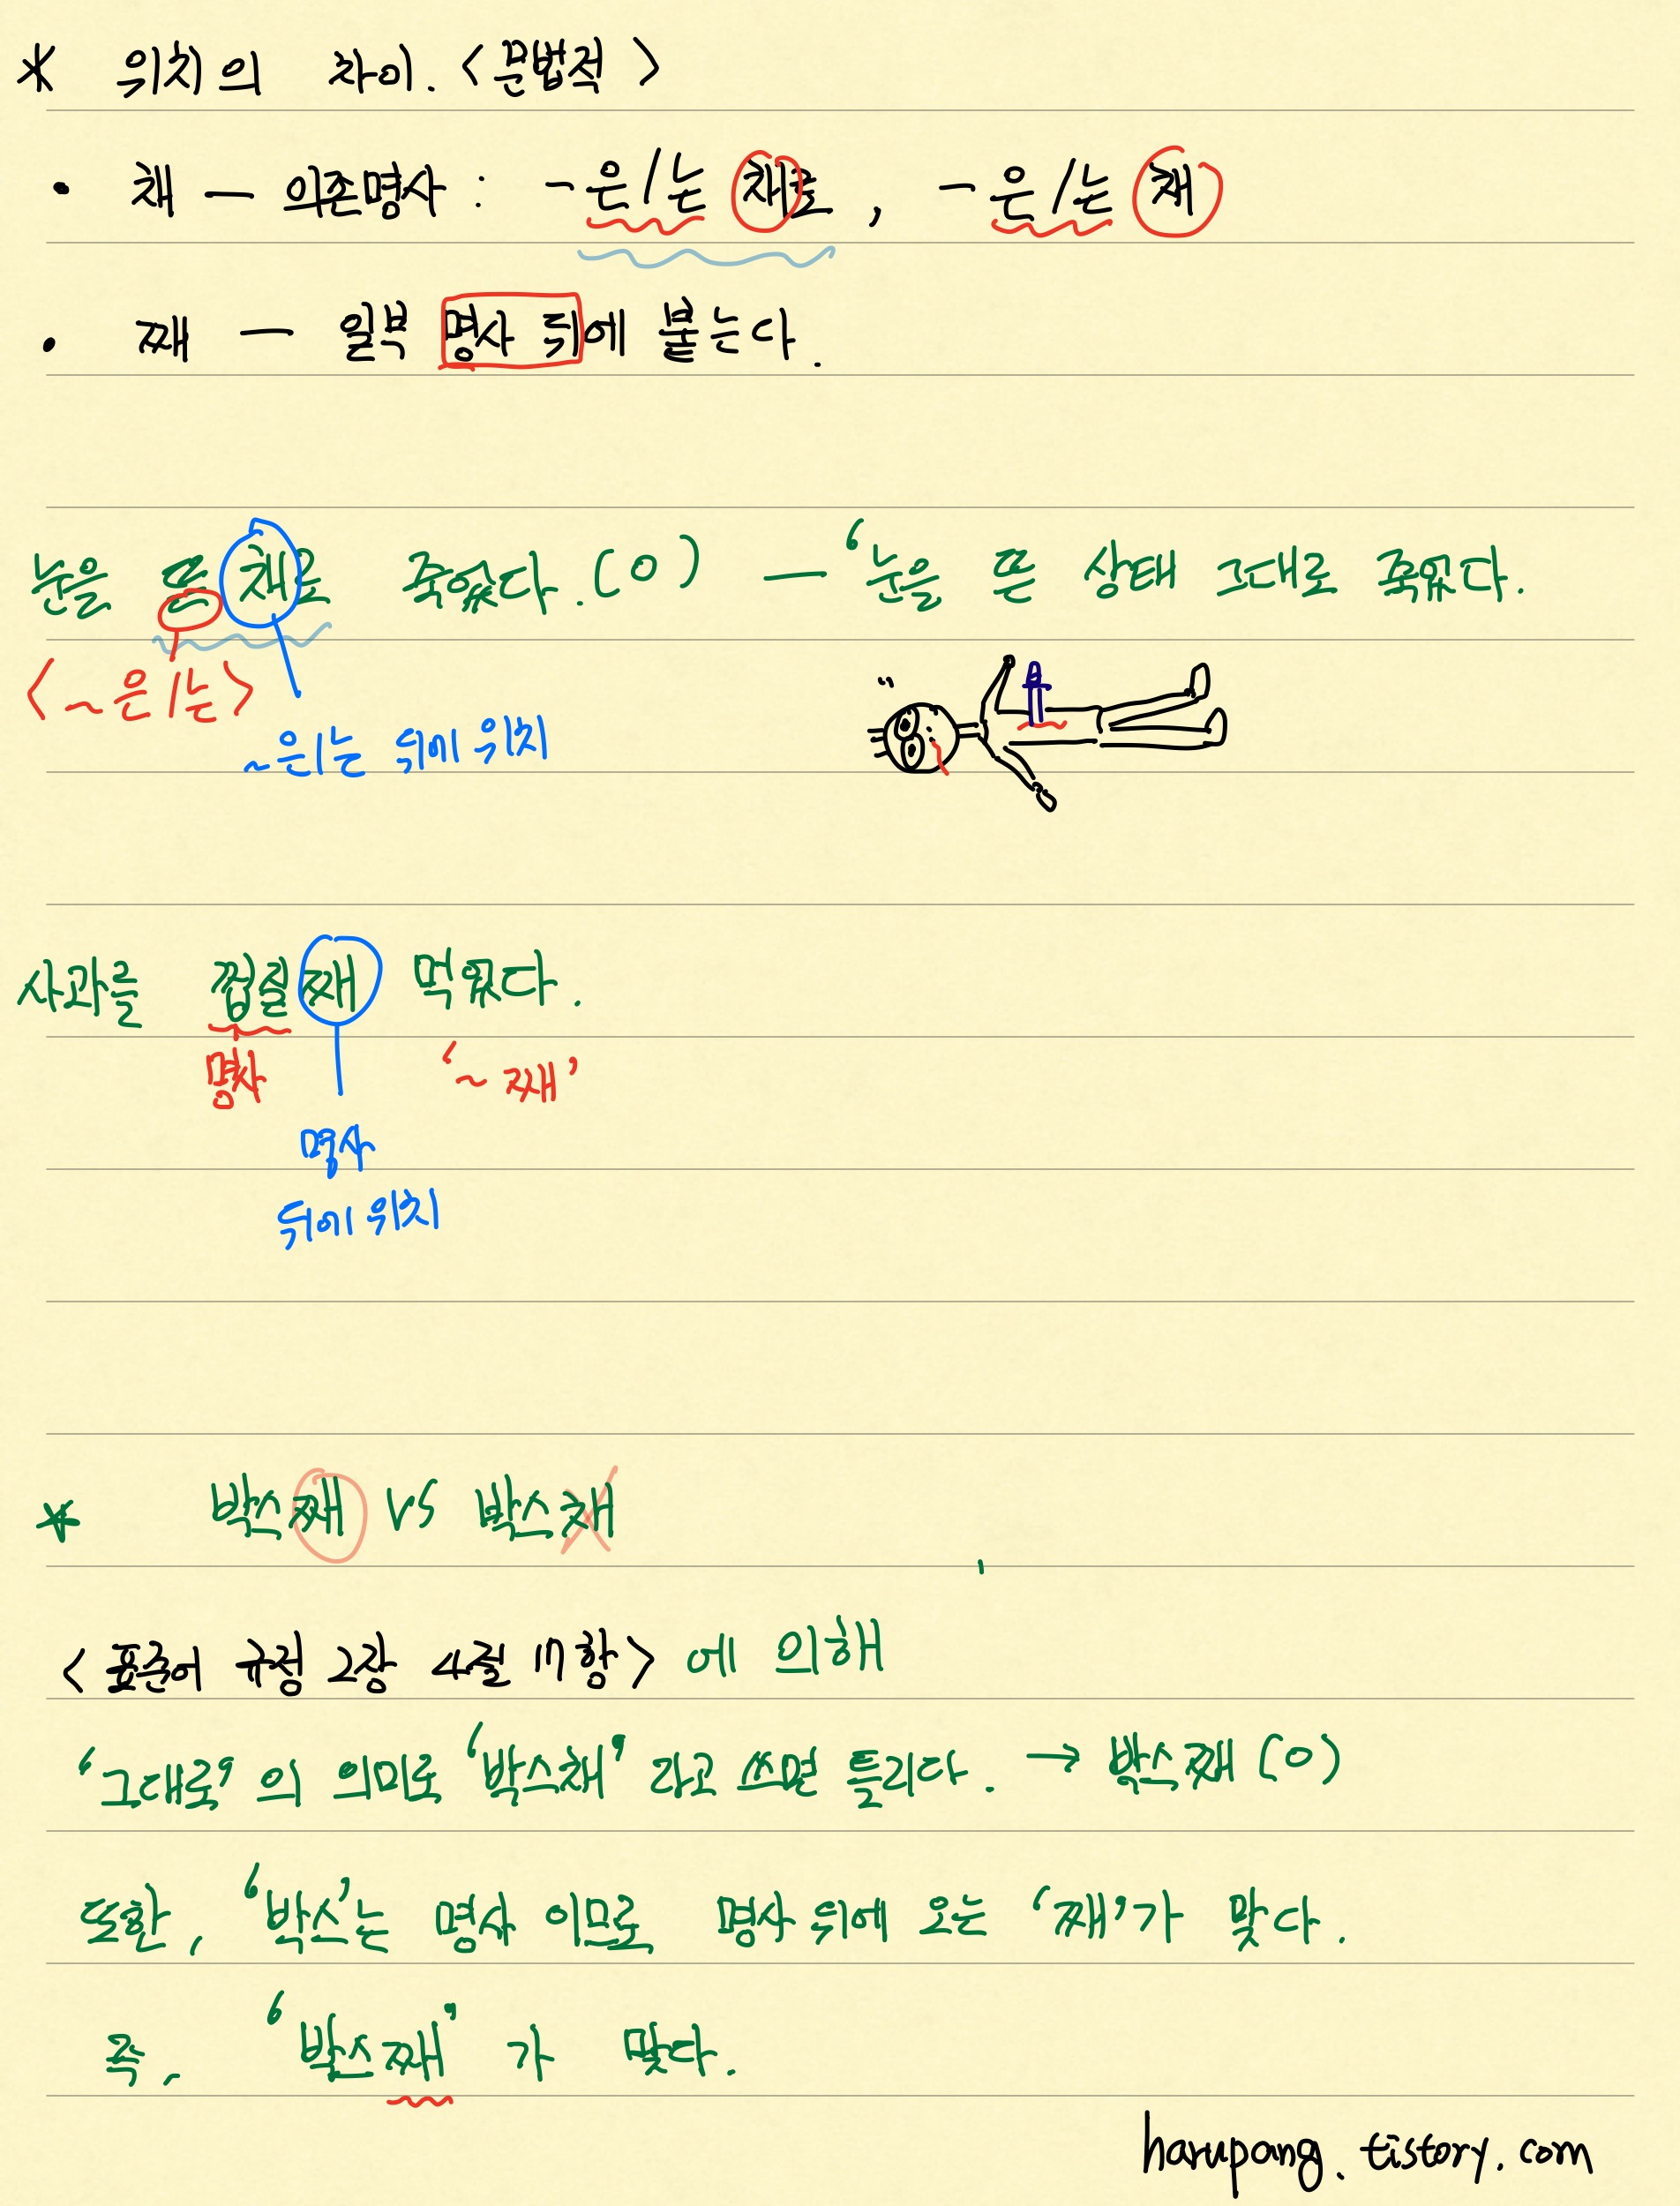 * 위치의 차이. <문법적>
• 채 - 의존명사 : -은/는 채로, -은/는 채
• 째 - 일부 명사 뒤에 붙는다.
눈을 뜬 채로 죽었다. (O) - '눈을 뜬 상태 그대로 죽었다.
<~은/는>
~은/는 뒤에 위치
사과를 껍질째 먹었다.
명사 '~째'
명사
뒤에 위치
* 박스째 VS 박스채
<표준어 규정 2장 4절 17항> 에 의해
"그대로"의 의미로 '박스채' 라고 쓰면 틀리다. → 박스째 (O)
또한, '박스'는 명사 이므로 명사 뒤에 오는 '째'가 맞다.
즉, '박스째' 가 맞다.
harupang.tistory.com